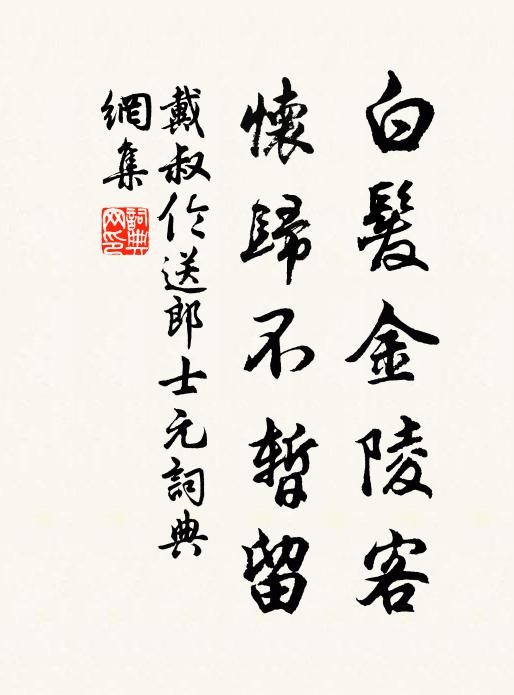 白髮金陵客
懷歸不暫留
戴叔伦送郎士元詞典
網集
詞典
网印